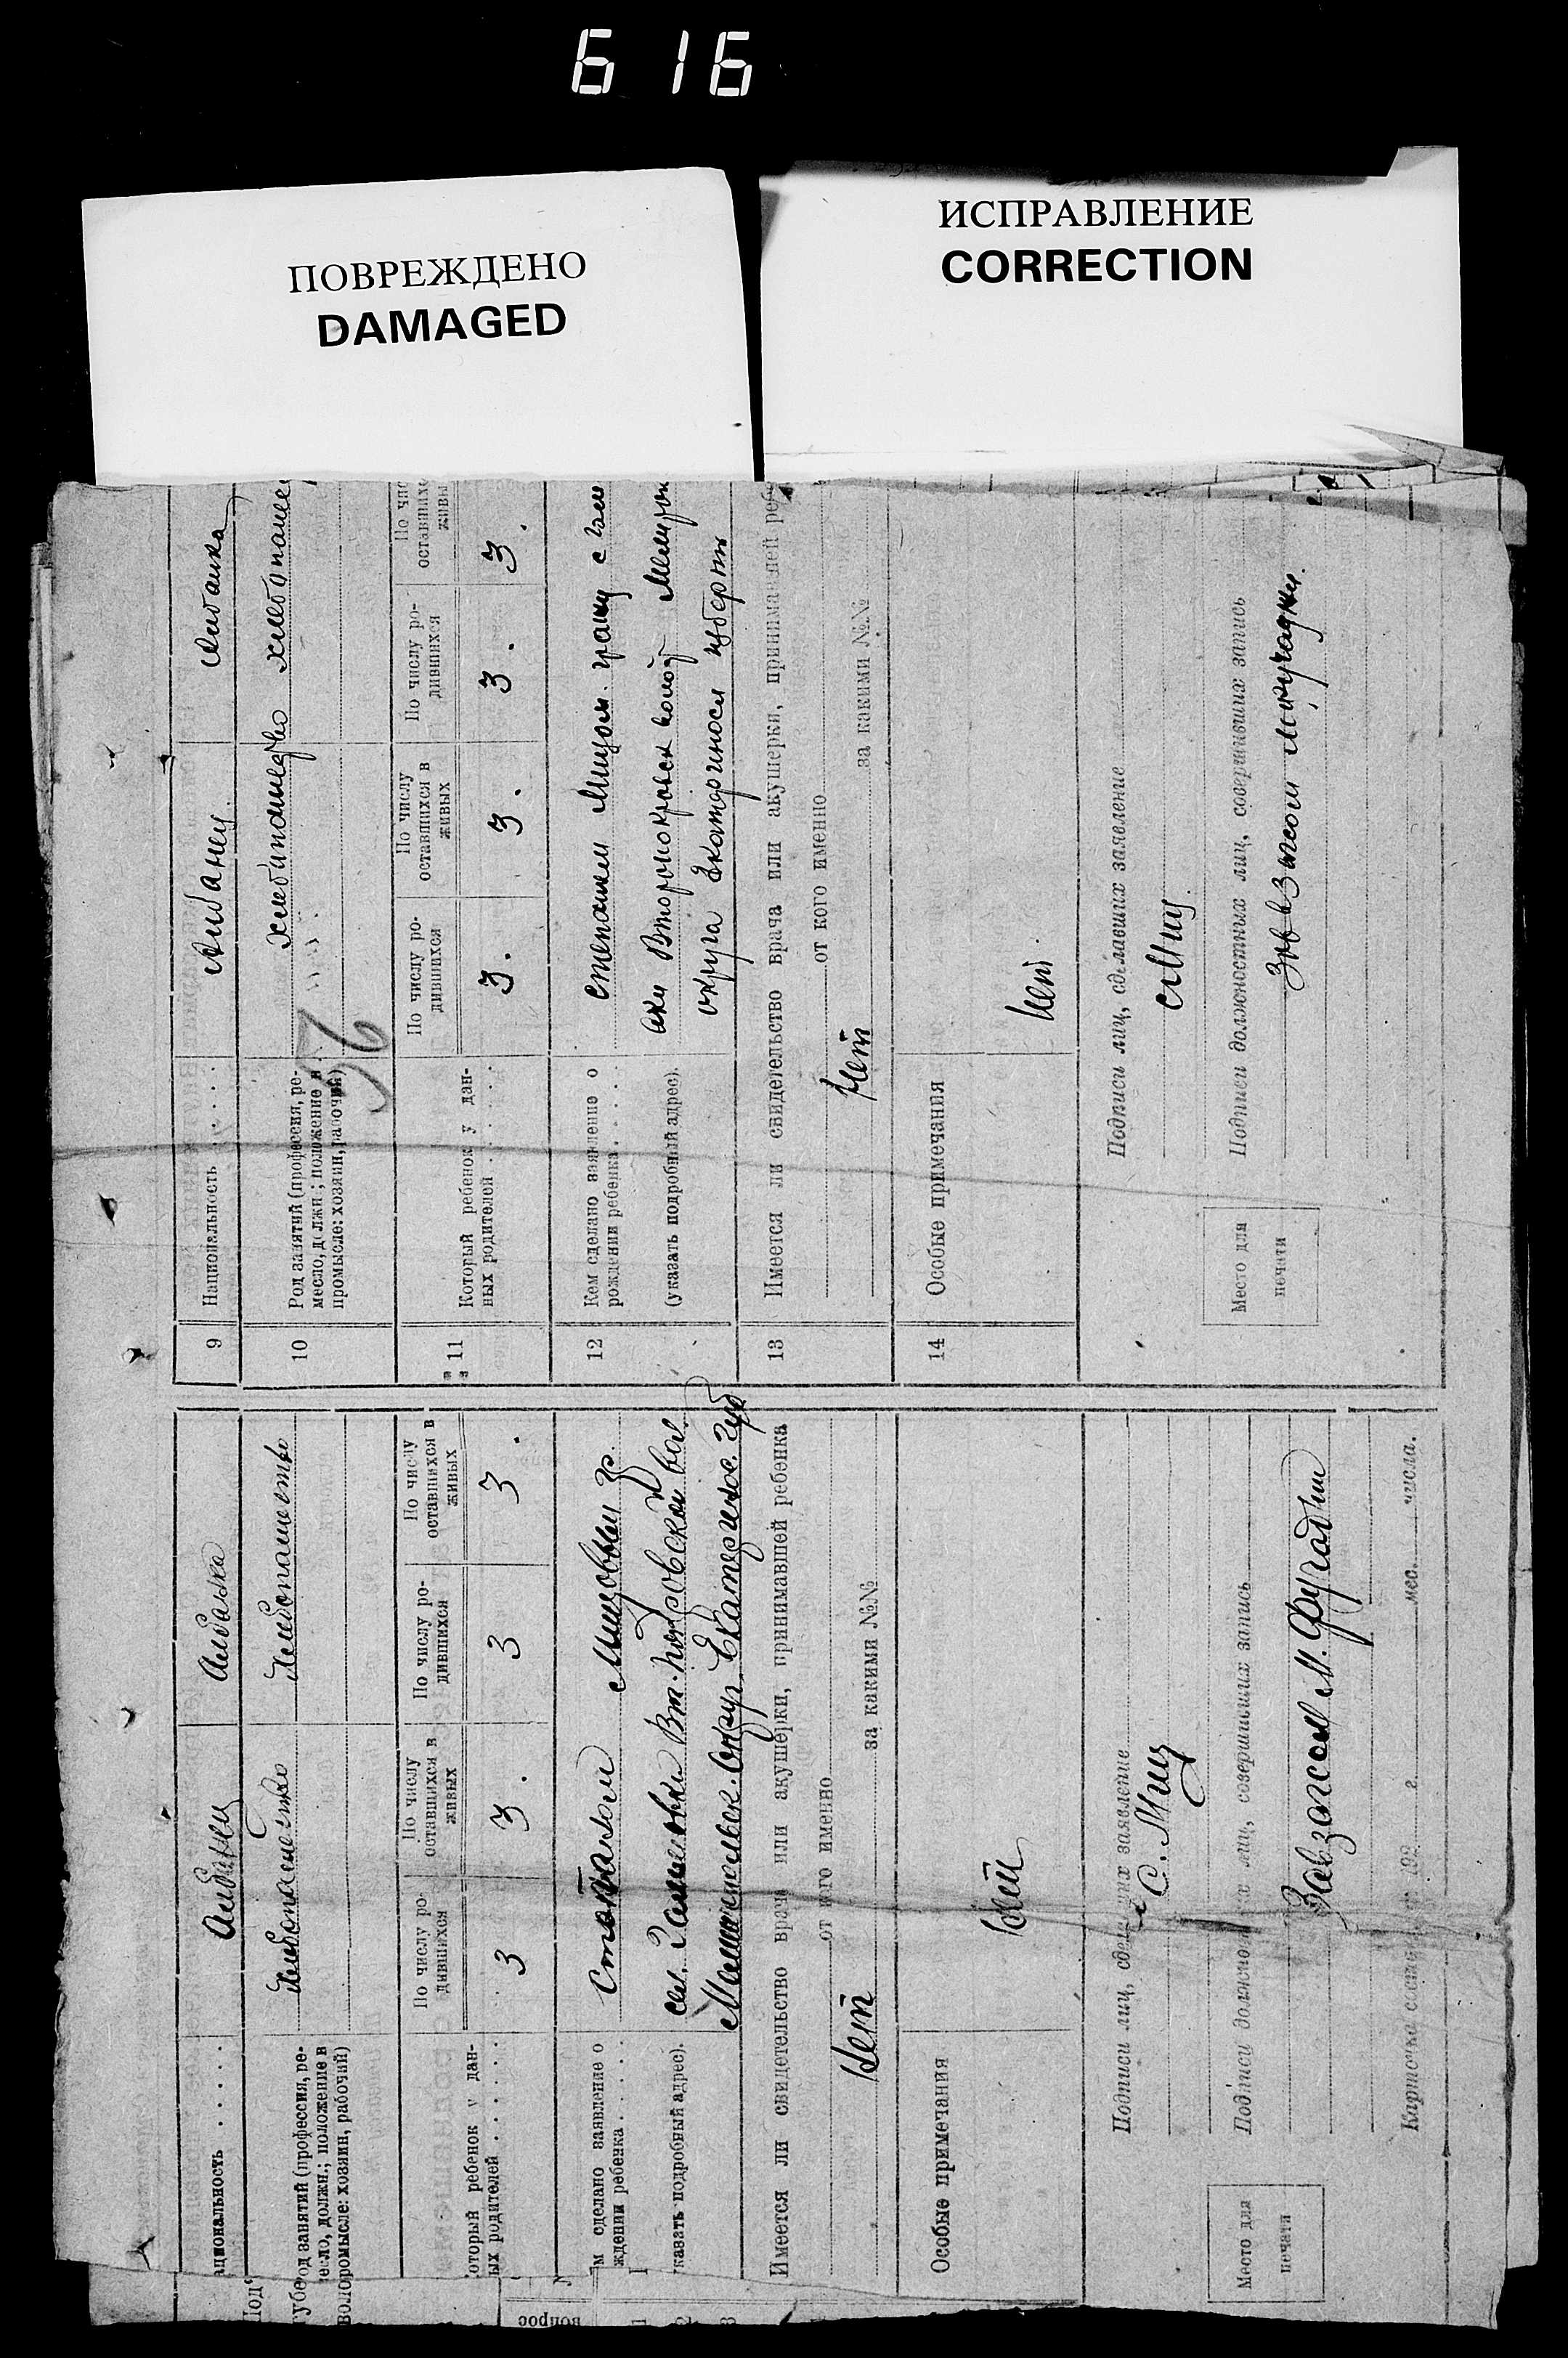 616
ПОВРЕЖДЕНО
DAMAGED
ИСПРАВЛЕНИЕ
CORRECTION
ациональность . . . . .
Албанец
Албанка
од занятий (профессия, ре-
есло, должн.; положение в
промысле: хозяин, рабочий)
Хлебопашество
Хлебопашество
оторый ребенок у дан-
ых родителей . . . . . .
По числу ро-
дившихся
По числу
оставшихся в
живых
По числу ро-
дившихся
По числу
оставшихся в
живых
3
3.
3
3.
м сделано заявление о
ждении ребенка . . . . .
казать подробный адрес).
Степаном Мицовым гр.
сел. Гамовки Вт. Покровской вол.
Мелитопольск. округ. Екатеринос. губ
Имеется ли свидетельство врача или акушерки, принимавшей ребенка
от кого именно
Нет
за какими №№
Особые примечания
Нет
Подписи лиц, сделавших заявление
С. Миц
Подписи должностных лиц, совершивших запись
Завзагсом М.
Место для
печати
Карточка составлена 192 г. мес. числа.
9
Национальность . . . .
Албанец
Албанка
10
Род занятий (профессия, ре-
месло, должн.; положение в
промысле: хозяин, рабочий)
хлебопашество
хлебопашес
96
11
Который ребенок у дан-
ных родителей . . . . . .
По числу ро-
дившихся
По числу
оставшихся в
живых
По числу ро-
дившихся
По чис
оставшихс
живы
3.
3.
3.
3.
12
Кем сделано заявление о
рождении ребенка . . . . .
(указать подробный адрес).
степаном Мицом. граж с Гам
вки Второпокровск волос Мелитоп
округа Екатериносл губерни
13
Имеется ли свидетельство врача или акушерки, принимавшей реб
от кого именно
Нет
за какими №№
14
Особые примечания
Нет.
Подписи лиц, сделавших заявление
с Миц.
Подписи должностных лиц, совершивших запись
Завзагсом
Место для
печати
вопрос